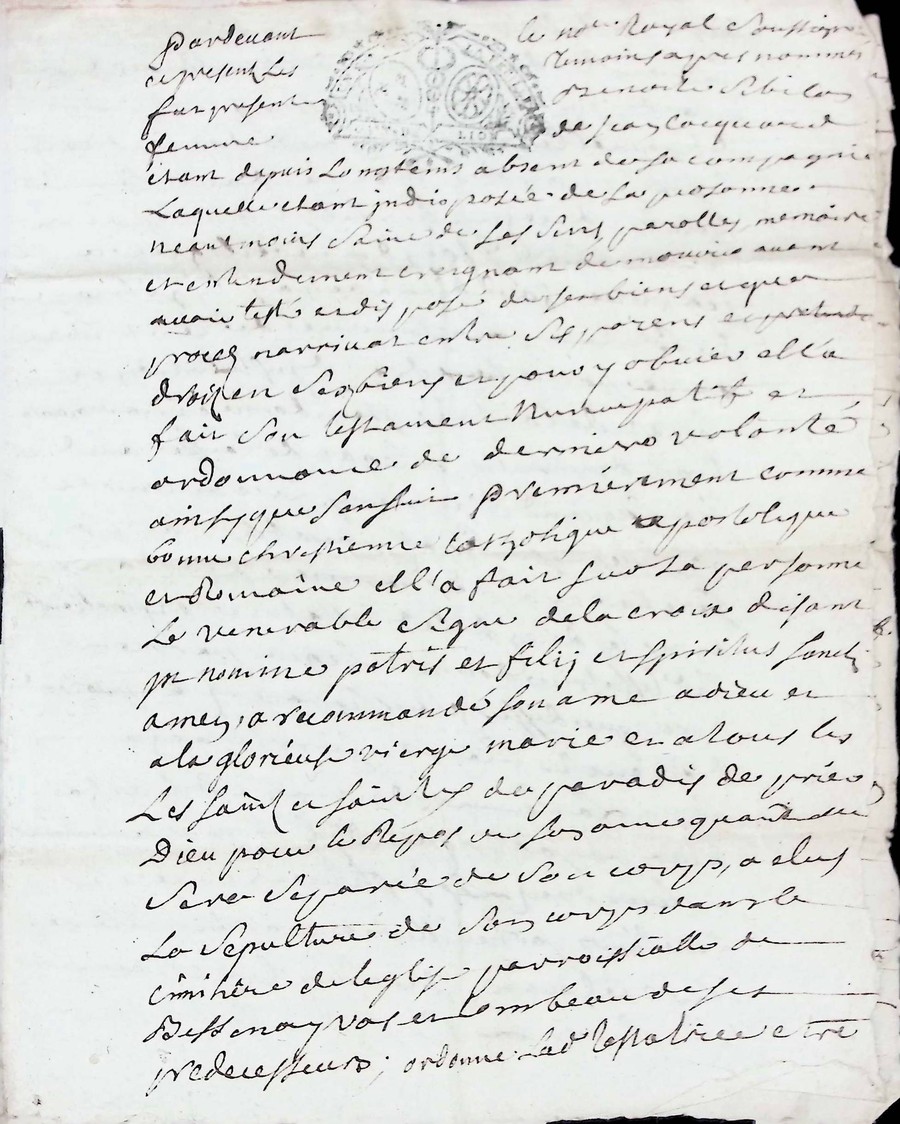 Pardevant le no.re Royal Soussigné
et presents Les temoins apres nommes
fut presente Benoite Sibilas
femme de jean Jacquard
étant depuis Longtems absent de sa compagnie
Laquelle etant jndisposée de sa personne
neautmoins Saine de Ses Sens parolles, memoire
et entendement creignant de mourir avant
avoir testé et disposé de ses biens et que
procez narrivat entre Ses parens et pretendt
droit en Ses biens et pour y obvier ell'a
fait Son testament Nuncupatif et
ordonnance de derniere volonté
ainsy que Sensuit Premiérement comme
bonne chrestienne catholique apostolique
et Romaine ell'a fait sur sa personne
Le venerable Signe de la croix disant
jn nomine patris et filij et Spiritus Sancti
amen, a recommandé son ame a dieu et
a la glorieuse vierge marie et a tous les
Les saints et saintes du paradis de prier
Dieu pour le Repos de son ame quand elle
Sera Separée de Son corps, a elus
La Sépulture de Son corps dans le
cimitiere de leglise parroissialle de
Bessenay vas et tombeau de ses
predecesseurs; ordonne Lad. testatrice etre